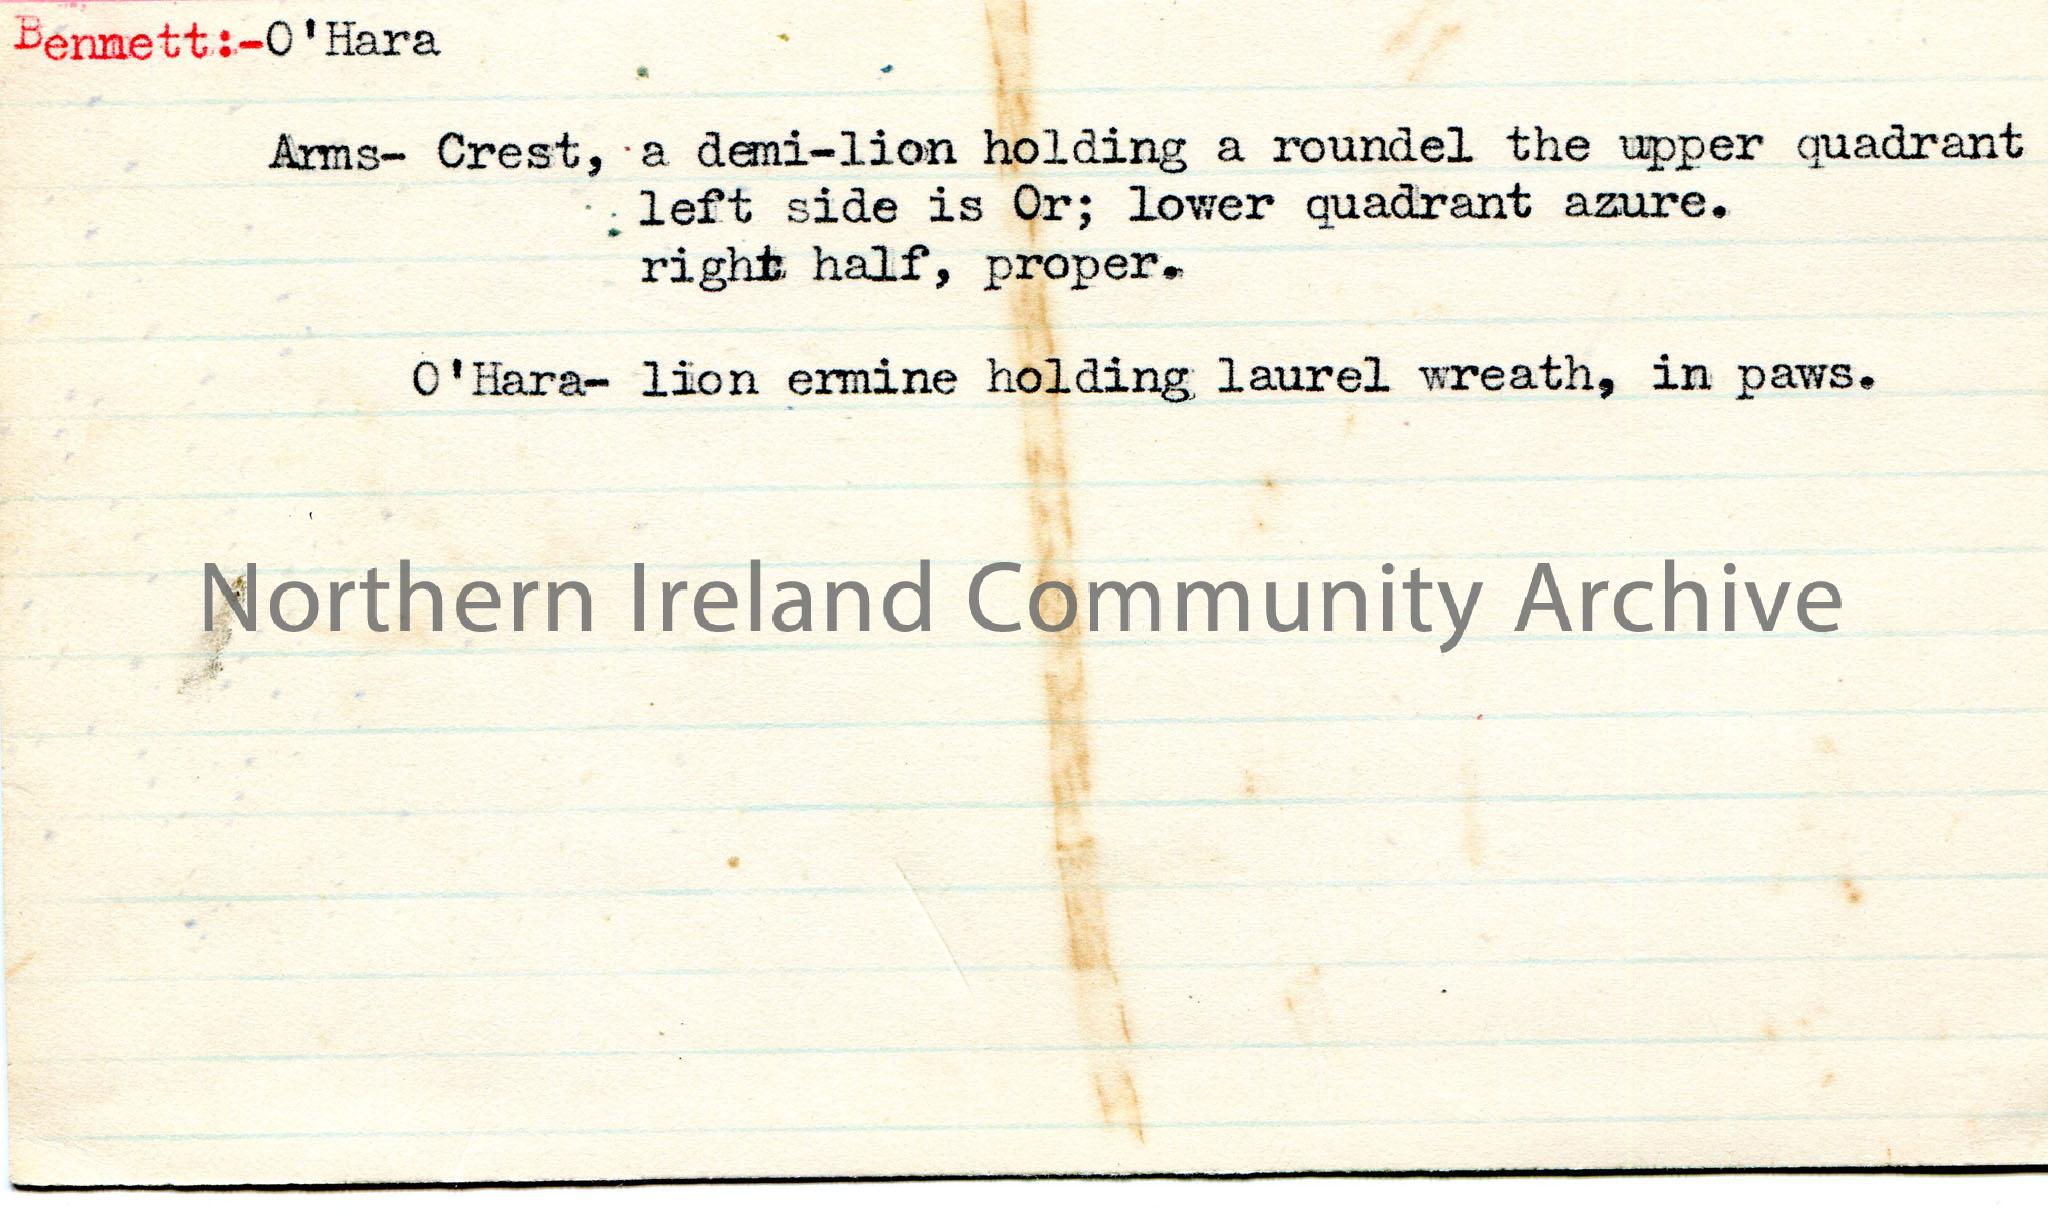 Bennett:-O'Hara
Arms- Crest, a demi-lion holding a roundel the upper quadrant
left side is Or; lower quadrant azure.
right half, proper.
O'Hara- lion ermine holding laurel wreath, in paws.
Northern Ireland Community Archive